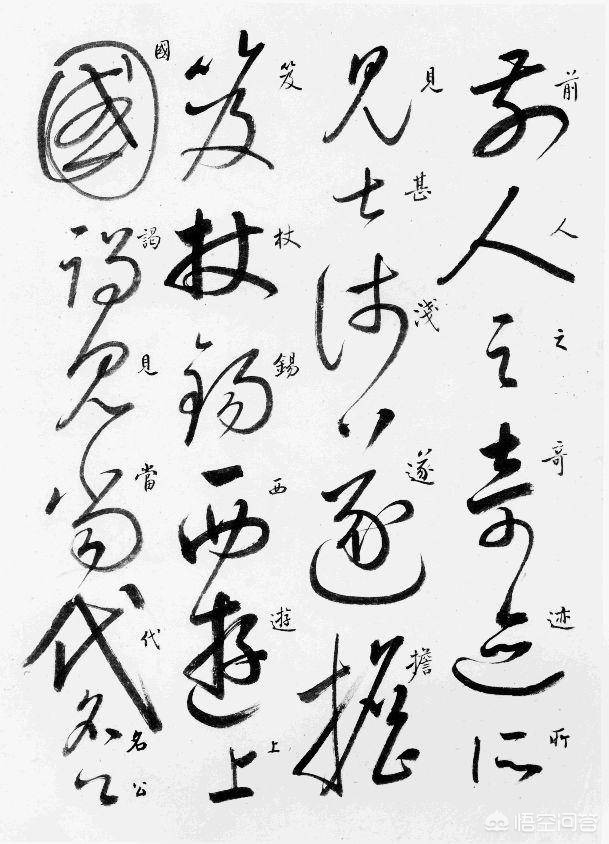 前人之奇迹所
見甚淺遂擔
笈杖錫西遊上
國謁見當代名公
悟空问答